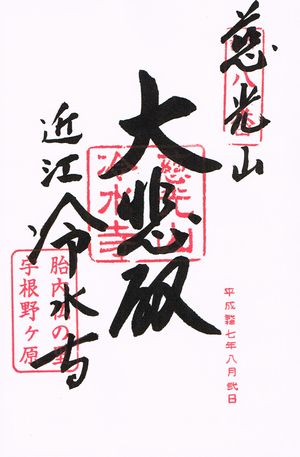 慈光山
大悲殿
慈光山
冷水寺
平成廿七年八月弐日
近江 冷水寺
胎内仏の里
宇根野ヶ原